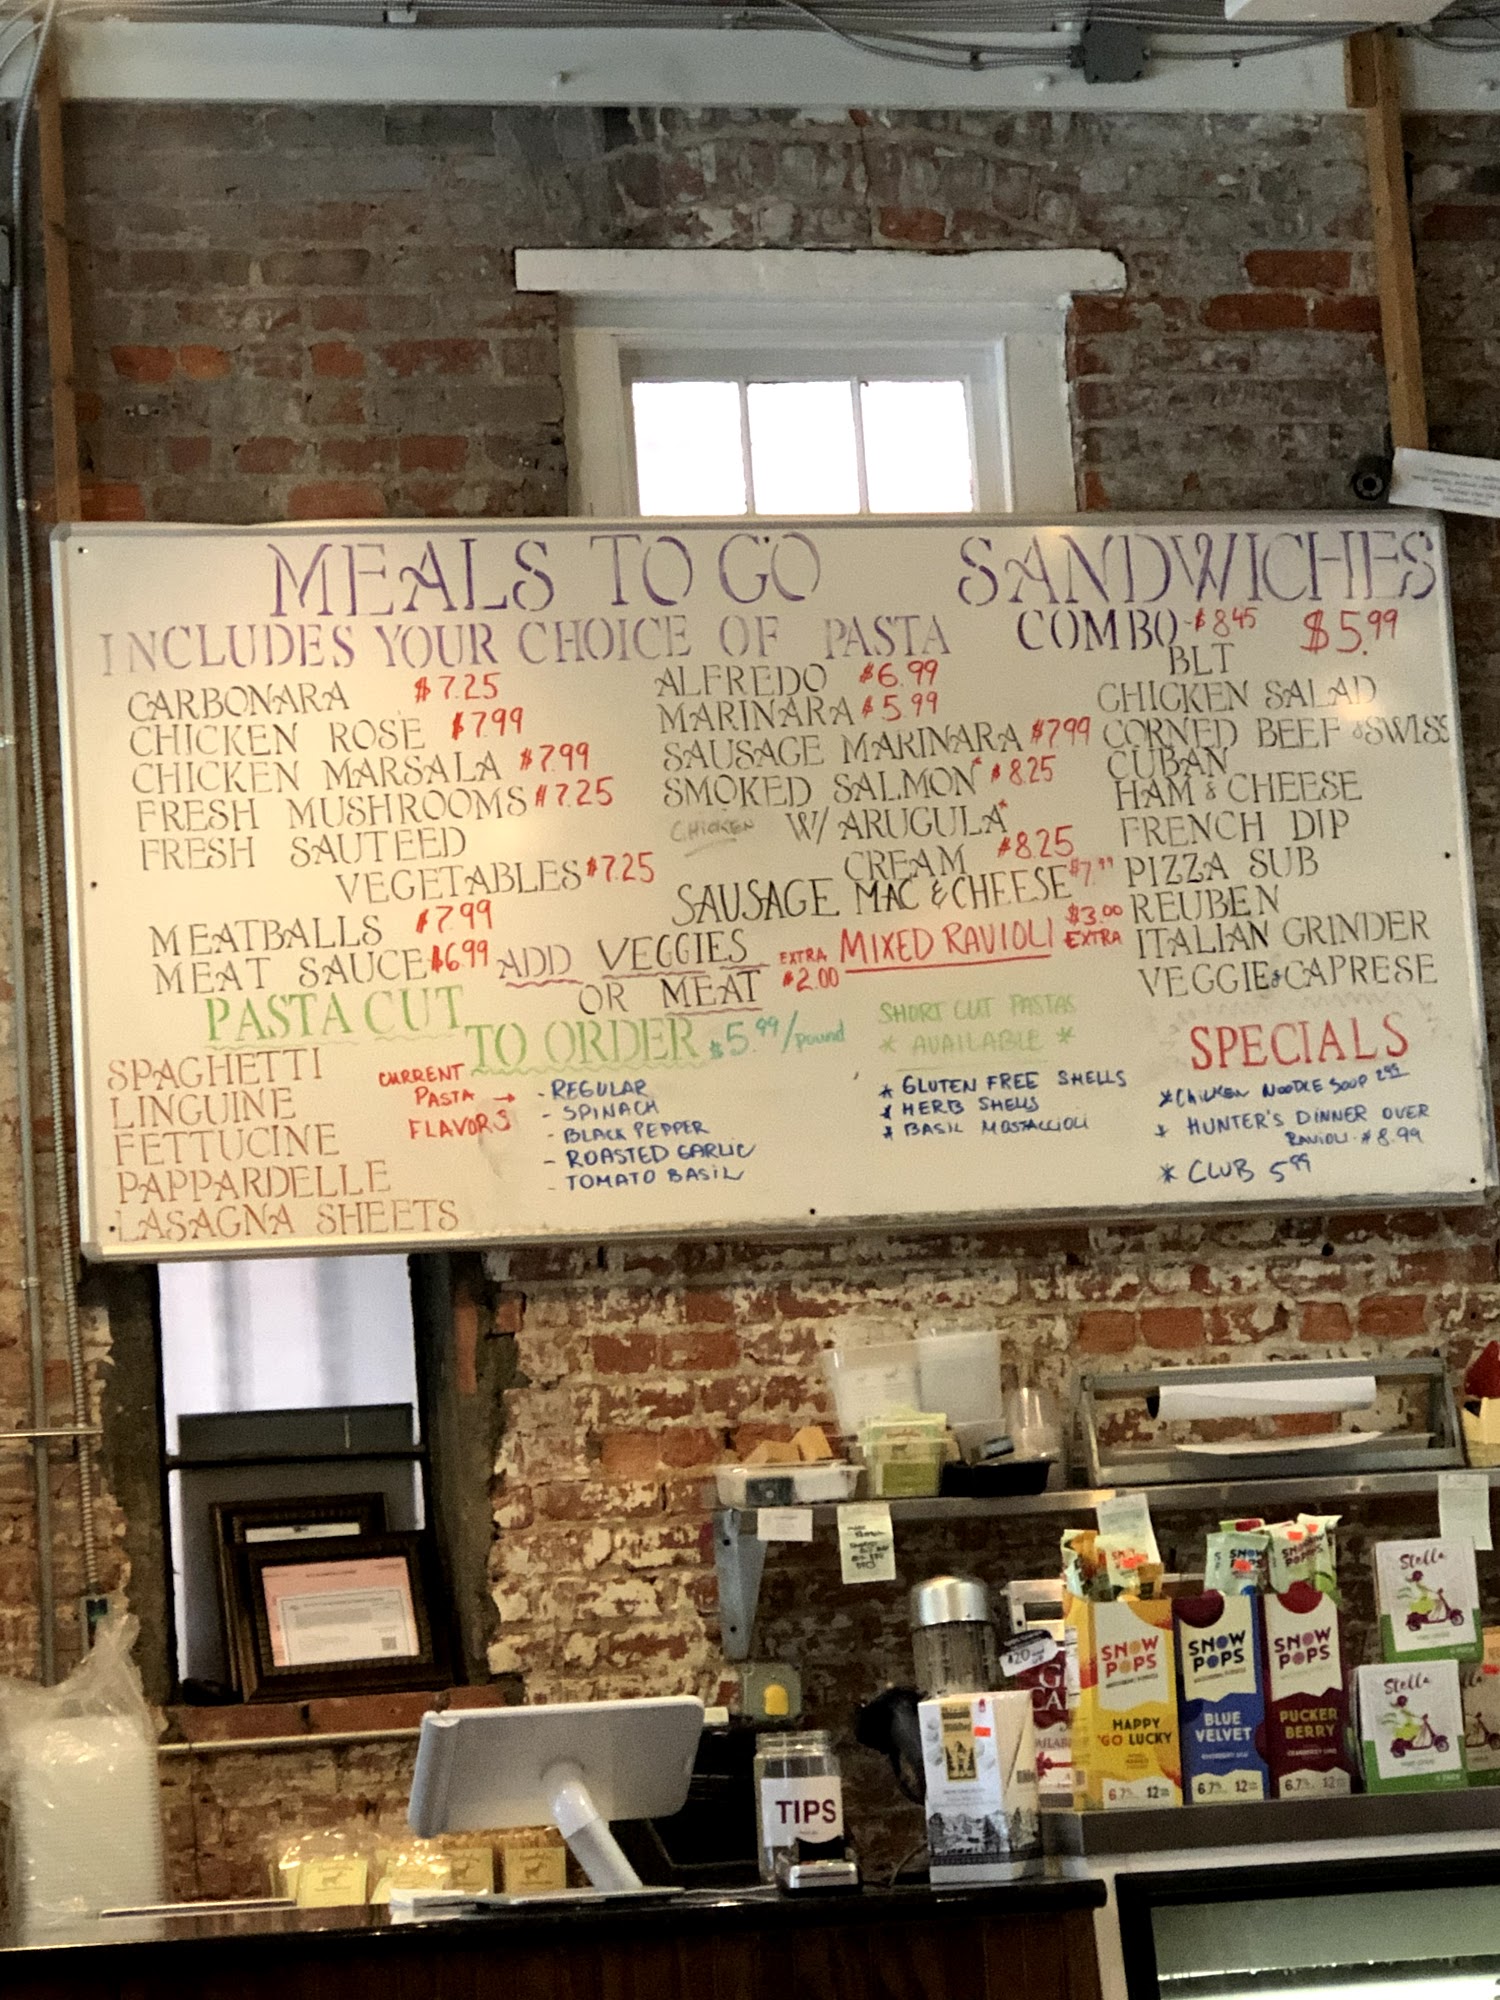 MEALS TO GO
INCLUDES YOUR CHOICE OF PASTA
CARBONARA $7.25
CHICKEN ROSE $7.99
CHICKEN MARSALA $7.99
FRESH MUSHROOMS $7.25
FRESH SAUTEED
VEGETABLES $7.25
MEATBALLS $7.99
MEAT SAUCE $6.99
ALFREDO $6.99
MARINARA $5.99
SAUSAGE MARINARA $7.99
SMOKED SALMON* $8.25
CHICKEN W/ ARUGULA*
CREAM $8.25
SAUSAGE MAC & CHEESE $7.99
ADD VEGGIES EXTRA
OR MEAT $2.00
MIXED RAVIOLI $3.00
EXTRA
SANDWICHES
COMBO - $8.45 $5.99
BLT
CHICKEN SALAD
CORNED BEEF & SWISS
CUBAN
HAM & CHEESE
FRENCH DIP
PIZZA SUB
REUBEN
ITALIAN GRINDER
VEGGIE & CAPRESE
PASTA CUT
TO ORDER $5.99/pound
SPAGHETTI
LINGUINE
FETTUCINE
PAPPARDELLE
LASAGNA SHEETS
CURRENT
PASTA →
FLAVORS
- REGULAR
- SPINACH
- BLACK PEPPER
- ROASTED GARLIC
- TOMATO BASIL
SHORT CUT PASTAS
* AVAILABLE *
* GLUTEN FREE SHELLS
* HERB SHELLS
* BASIL MOSTACCIOLI
SPECIALS
* CHICKEN NOODLE SOUP 2.99
* HUNTER'S DINNER OVER
RAVIOLI - $8.99
* CLUB 5.99
TIPS
$20
SNOW
POPS
HAPPY
'GO LUCKY
6.7% 12
SNOW
POPS
BLUE
VELVET
6.7% 12
SNOW
POPS
PUCKER
BERRY
6.7% 12
Stella
Stella